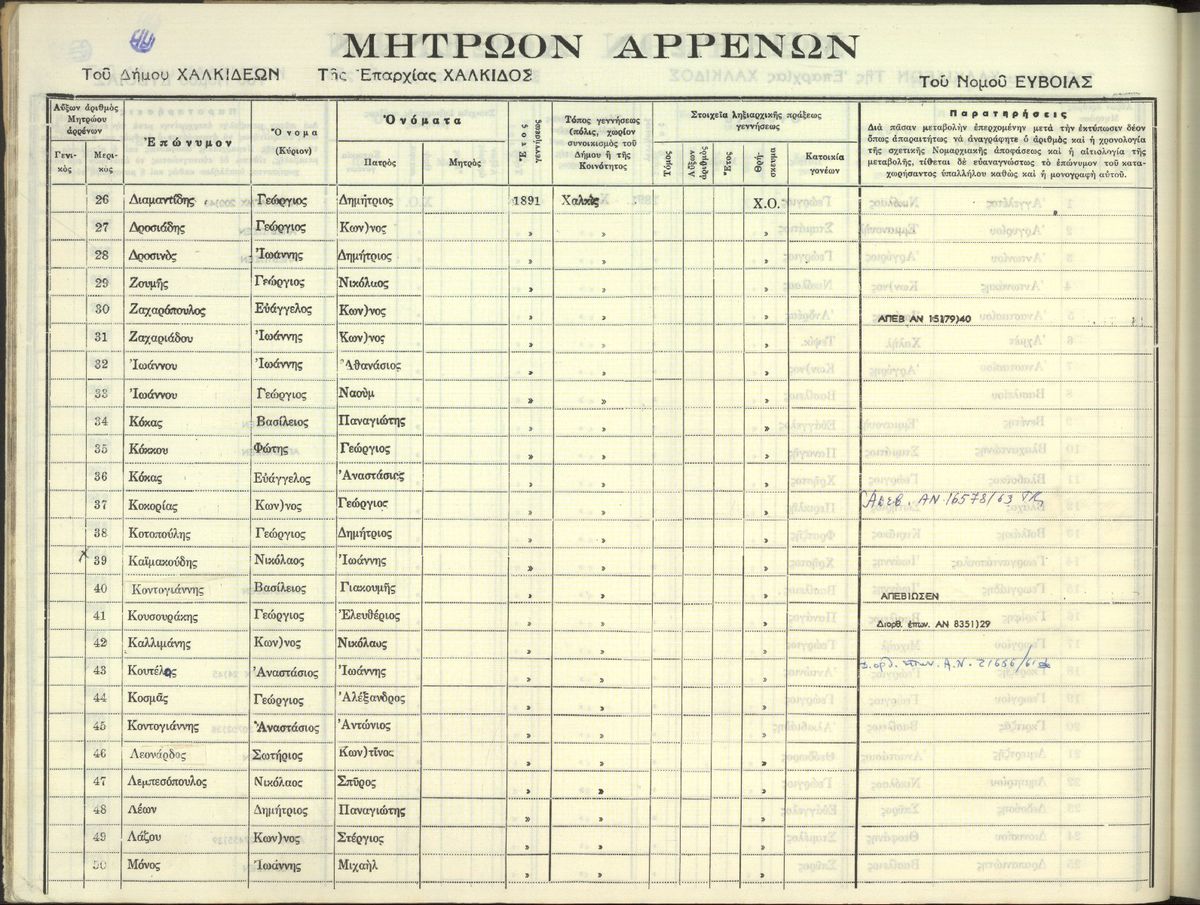 ΜΗΤΡΩΟΝ ΑΡΡΕΝΩΝ
Τοῦ Δήμου ΧΑΛΚΙΔΕΩΝ Τῆς Ἐπαρχίας ΧΑΛΚΙΔΟΣ Τοῦ Νομοῦ ΕΥΒΟΙΑΣ
Αὔξων ἀριθμὸς Μητρώου ἀρρένων
Γενικὸς Μερικὸς
Ἐπώνυμον
Ὄνομα (Κύριον)
Ὀνόματα
Πατρὸς Μητρὸς
Ἔτος γεννήσεως
Τόπος γεννήσεως (πόλις, χωρίον συνοικισμὸς τοῦ Δήμου ἢ τῆς Κοινότητος
Στοιχεῖα ληξιαρχικῆς πράξεως γεννήσεως
Τόμος Αὔξων ἀριθμὸς Ἔτος Θρήσκευμα Κατοικία γονέων
Παρατηρήσεις
Διὰ πᾶσαν μεταβολὴν ἐπερχομένην μετὰ τὴν ἐκτύπωσιν δέον
ὅπως ἀπαραιτήτως νὰ ἀναγράφητε ὁ ἀριθμὸς καὶ ἡ χρονολογία
τῆς σχετικῆς Νομαρχιακῆς ἀποφάσεως καὶ ἡ αἰτιολογία τῆς
μεταβολῆς, τίθεται δὲ εὐαναγνώστως τὸ ἐπώνυμον τοῦ κατα-
χωρήσαντος ὑπαλλήλου καθὼς καὶ ἡ μονογραφὴ αὐτοῦ.
26 Διαμαντίδης Γεώργιος Δημήτριος 1891 Χαλκὶς Χ.Ο.
27 Δροσιάδης Γεώργιος Κων)νος » » »
28 Δροσινὸς Ἰωάννης Δημήτριος » » »
29 Ζουμῆς Γεώργιος Νικόλαος » » »
30 Ζαχαρόπουλος Εὐάγγελος Κων)νος » » » ΑΠΕΒ ΑΝ 15179)40
31 Ζαχαριάδου Ἰωάννης Κων)νος » » »
32 Ἰωάννου Ἰωάννης Ἀθανάσιος » » »
33 Ἰωάννου Γεώργιος Ναοὺμ » » »
34 Κόκας Βασίλειος Παναγιώτης » » »
35 Κόκκου Φώτης Γεώργιος » » »
36 Κόκας Εὐάγγελος Ἀναστάσιος » » »
37 Κοκορίας Κων)νος Γεώργιος » » » Ἀπεβ. ΑΝ 16578/63
38 Κοτοπούλης Γεώργιος Δημήτριος » » »
39 Καϊμακούδης Νικόλαος Ἰωάννης » » »
40 Κοντογιάννης Βασίλειος Γιακουμῆς » » » ΑΠΕΒΙΩΣΕΝ
41 Κουσουράκης Γεώργιος Ἐλευθέριος » » » Διορθ. ἐπων. ΑΝ 8351)29
42 Καλλιμάνης Κων)νος Νικόλαυς » » »
43 Κουτέλας Ἀναστάσιος Ἰωάννης » » » Α.Ν. 21656/61
44 Κοσμᾶς Γεώργιος Ἀλέξανδρος » » »
45 Κοντογιάννης Ἀναστάσιος Ἀντώνιος » » »
46 Λεονάρδος Σωτήριος Κων)τῖνος » » »
47 Λεμπεσόπουλος Νικόλαος Σπῦρος » » »
48 Λέων Δημήτριος Παναγιώτης » » »
49 Λάζου Κων)νος Στέργιος » » »
50 Μόνος Ἰωάννης Μιχαὴλ » » »